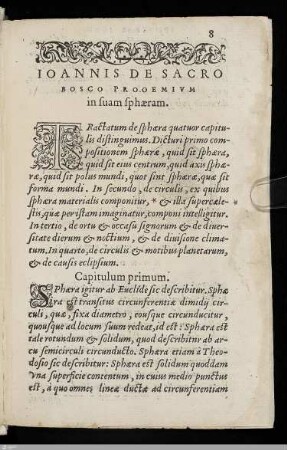 8
IOANNIS DE SACRO
BOSCO PROOEMIVM
in suam sphæram.
TRactatum de sphæra quatuor capitu-
lis distinguimus. Dicturi primo com-
positionem sphæræ, quid sit sphæra,
quid sit eius centrum, quid axis sphæ-
ræ, quid sit polus mundi, quot sint sphæræ, quæ sit
forma mundi. In secundo, de circulis, ex quibus
sphæra materialis componitur, & illa supercæle-
stis, quæ per istam imaginatur, componi intelligitur.
In tertio, de ortu & occasu signorum & de diuer-
sitate dierum & noctium, & de diuisione clima-
tum. In quarto, de circulis & motibus planetarum,
& de causis eclipsium.
Capitulum primum.
SPhæra igitur ab Euclide sic describitur. Sphæ
ra est transitus circunferentiæ dimidij cir-
culi, quæ, fixa diametro, eousque circunducitur,
quousque ad locum suum redeat, id est: Sphæra est
tale rotundum & solidum, quod describitur ab ar-
cu semicirculi circunducto. Sphæra etiam à Theo-
dosio sic describitur: Sphæra est solidum quoddam
vna superficie contentum, in cuius medio punctus
est, a quo omnes lineæ ductæ ad circunferentiam